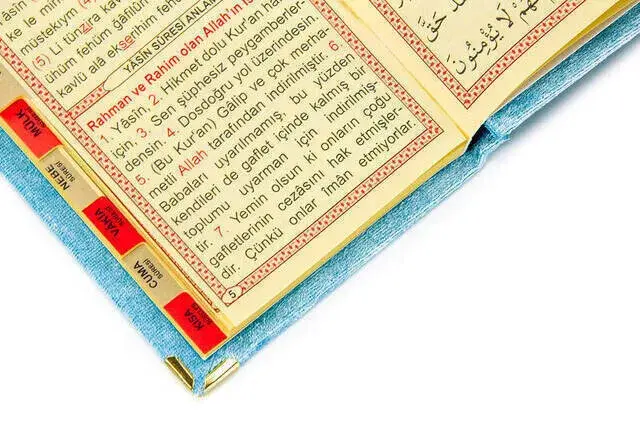 müstekıym
(5) Li tünzira ka
ühüm fehüm gâfilû
kavlü alâ ekserihim fehüm
YÂSÎN SÛRESİ ANLA
Rahman ve Rahim olan Allah'ın is
1. Yâsîn. 2. Hikmet dolu Kur'an ha
için, 3. Sen şüphesiz peygamberler-
densin. 4. Dosdoğru yol üzerindesin.
5. (Bu Kur'an) Gâlip ve çok merha-
metli Allah tarafından indirilmiştir. 6.
Babaları uyarılmamış, bu yüzden
kendileri de gaflet içinde kalmış bir
toplumu uyarman için indirilmiş-
tir. 7. Yemin olsun ki onların çoğu
gafletlerinin cezâsını hak etmişler-
dir. Çünkü onlar îmân etmiyorlar.
5
MÜLK
SÛRESİ
NEBE
SÛRESİ
VÂKIA
SÛRESİ
CUMA
SÛRESİ
KISA
SÛRELER
حَقَّ
هُمْ لَا يُؤْمِنُونَ